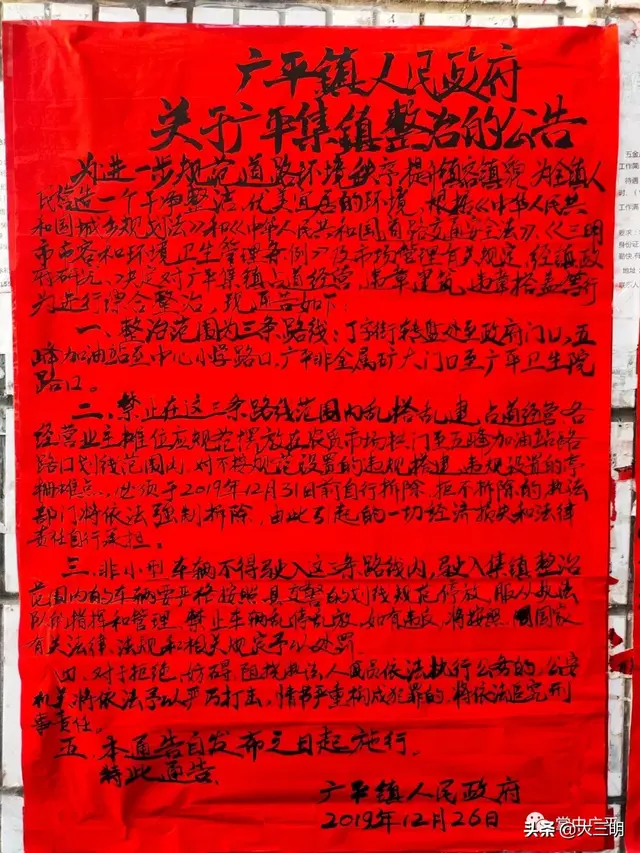 广平镇人民政府
关于广平集镇整治的公告
为进一步规范道路环境秩序提升镇容镇貌,为全镇人
民营造一个干净整洁、优美宜居的环境,根据《中华人民共
和国城乡规划法》和《中华人民共和国道路交通安全法》、《三明
市市容和环境卫生管理条例》及市场管理有关规定,经镇政
府研究,决定对广平集镇占道经营、违章建筑、违章搭盖等行
为进行综合整治,现通告如下:
一、整治范围为三条路线:丁字街转盘处至政府门口,五
峰加油站至中心小学路口,广平非金属矿大门口至广平卫生院
路口。
二、禁止在这三条路线范围内乱搭乱建、占道经营,各
经营业主摊位应规范摆放在农贸市场松门至五峰加油站路
路口划线范围内,对不按规范设置的违规搭建、违规设置的亭
棚摊点,必须于2019年12月31日前自行拆除,拒不拆除的执法
部门将依法强制拆除,由此引起的一切经济损失和法律
责任自行承担。
三、非小型车辆不得驶入这三条路线内,驶入集镇整治
范围内的车辆要严格按照县交警的划线规范停放,服从执法
队的指挥和管理,禁止车辆乱停乱放,如有违反,将按照国家
有关法律、法规和相关规定予以处罚。
四、对于拒绝、妨碍、阻挠执法人员依法执行公务的,公安
机关将依法予以严厉打击,情节严重构成犯罪的,将依法追究刑
事责任。
五、本通告自发布之日起施行。
特此通告。
广平镇人民政府
2019年12月26日
掌中广平
头条@大三明